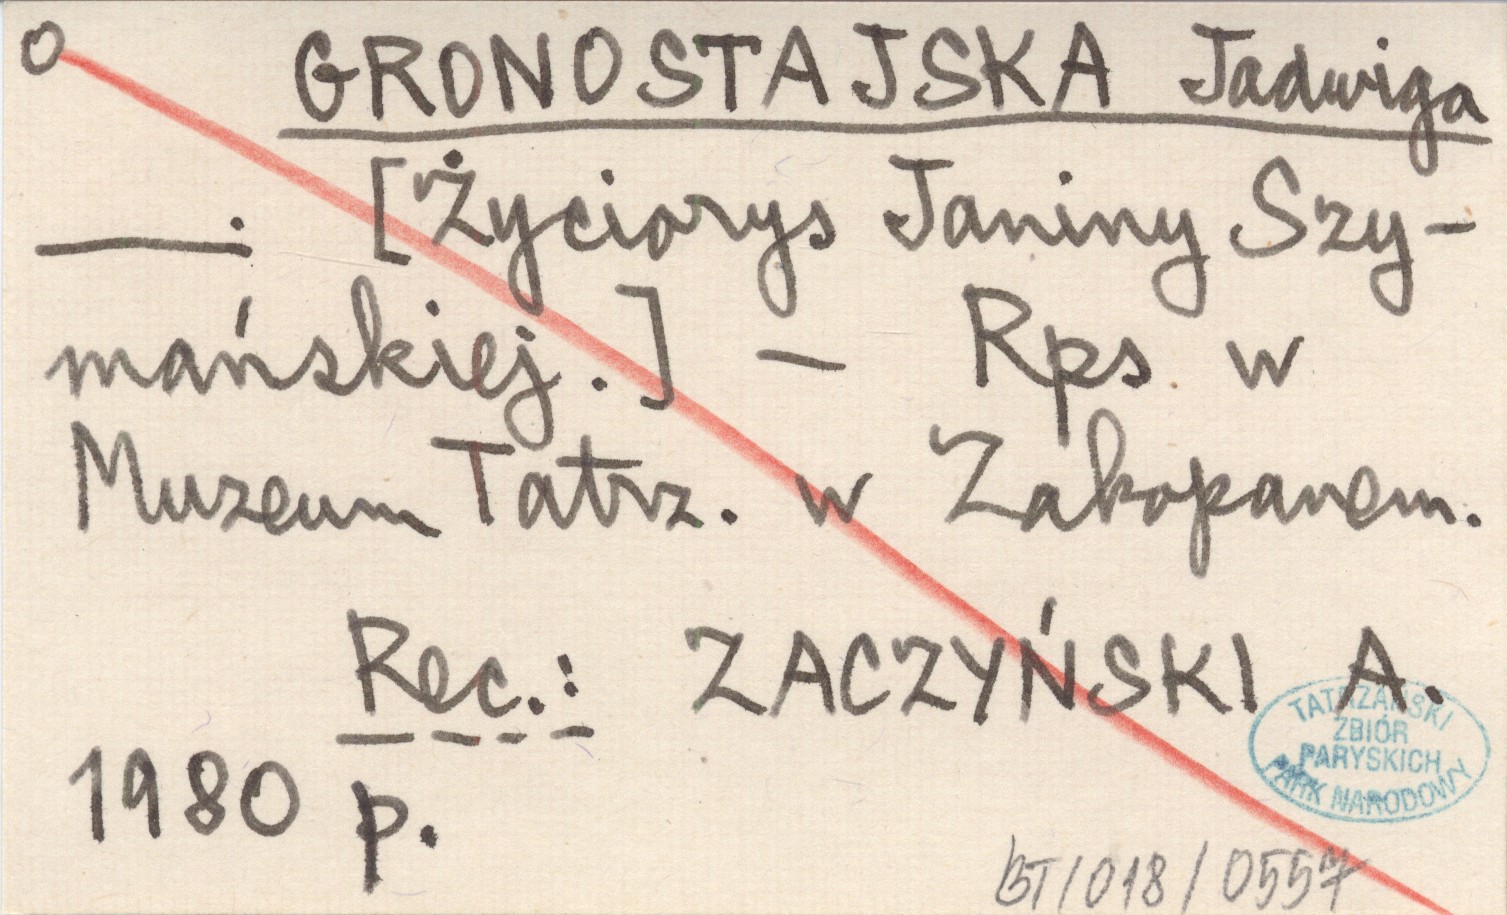 O GRONOSTAJSKA Jadwiga
—— : [Życiorys Janiny Szy-
mańskiej.] — Rps w
Muzeum Tatrz. w Zakopanem.
Rec.: ZACZYŃSKI A.
1980 p.
TATRZAŃSKI
ZBIÓR
PARYSKICH
PARK NARODOWY
BT/018/0557